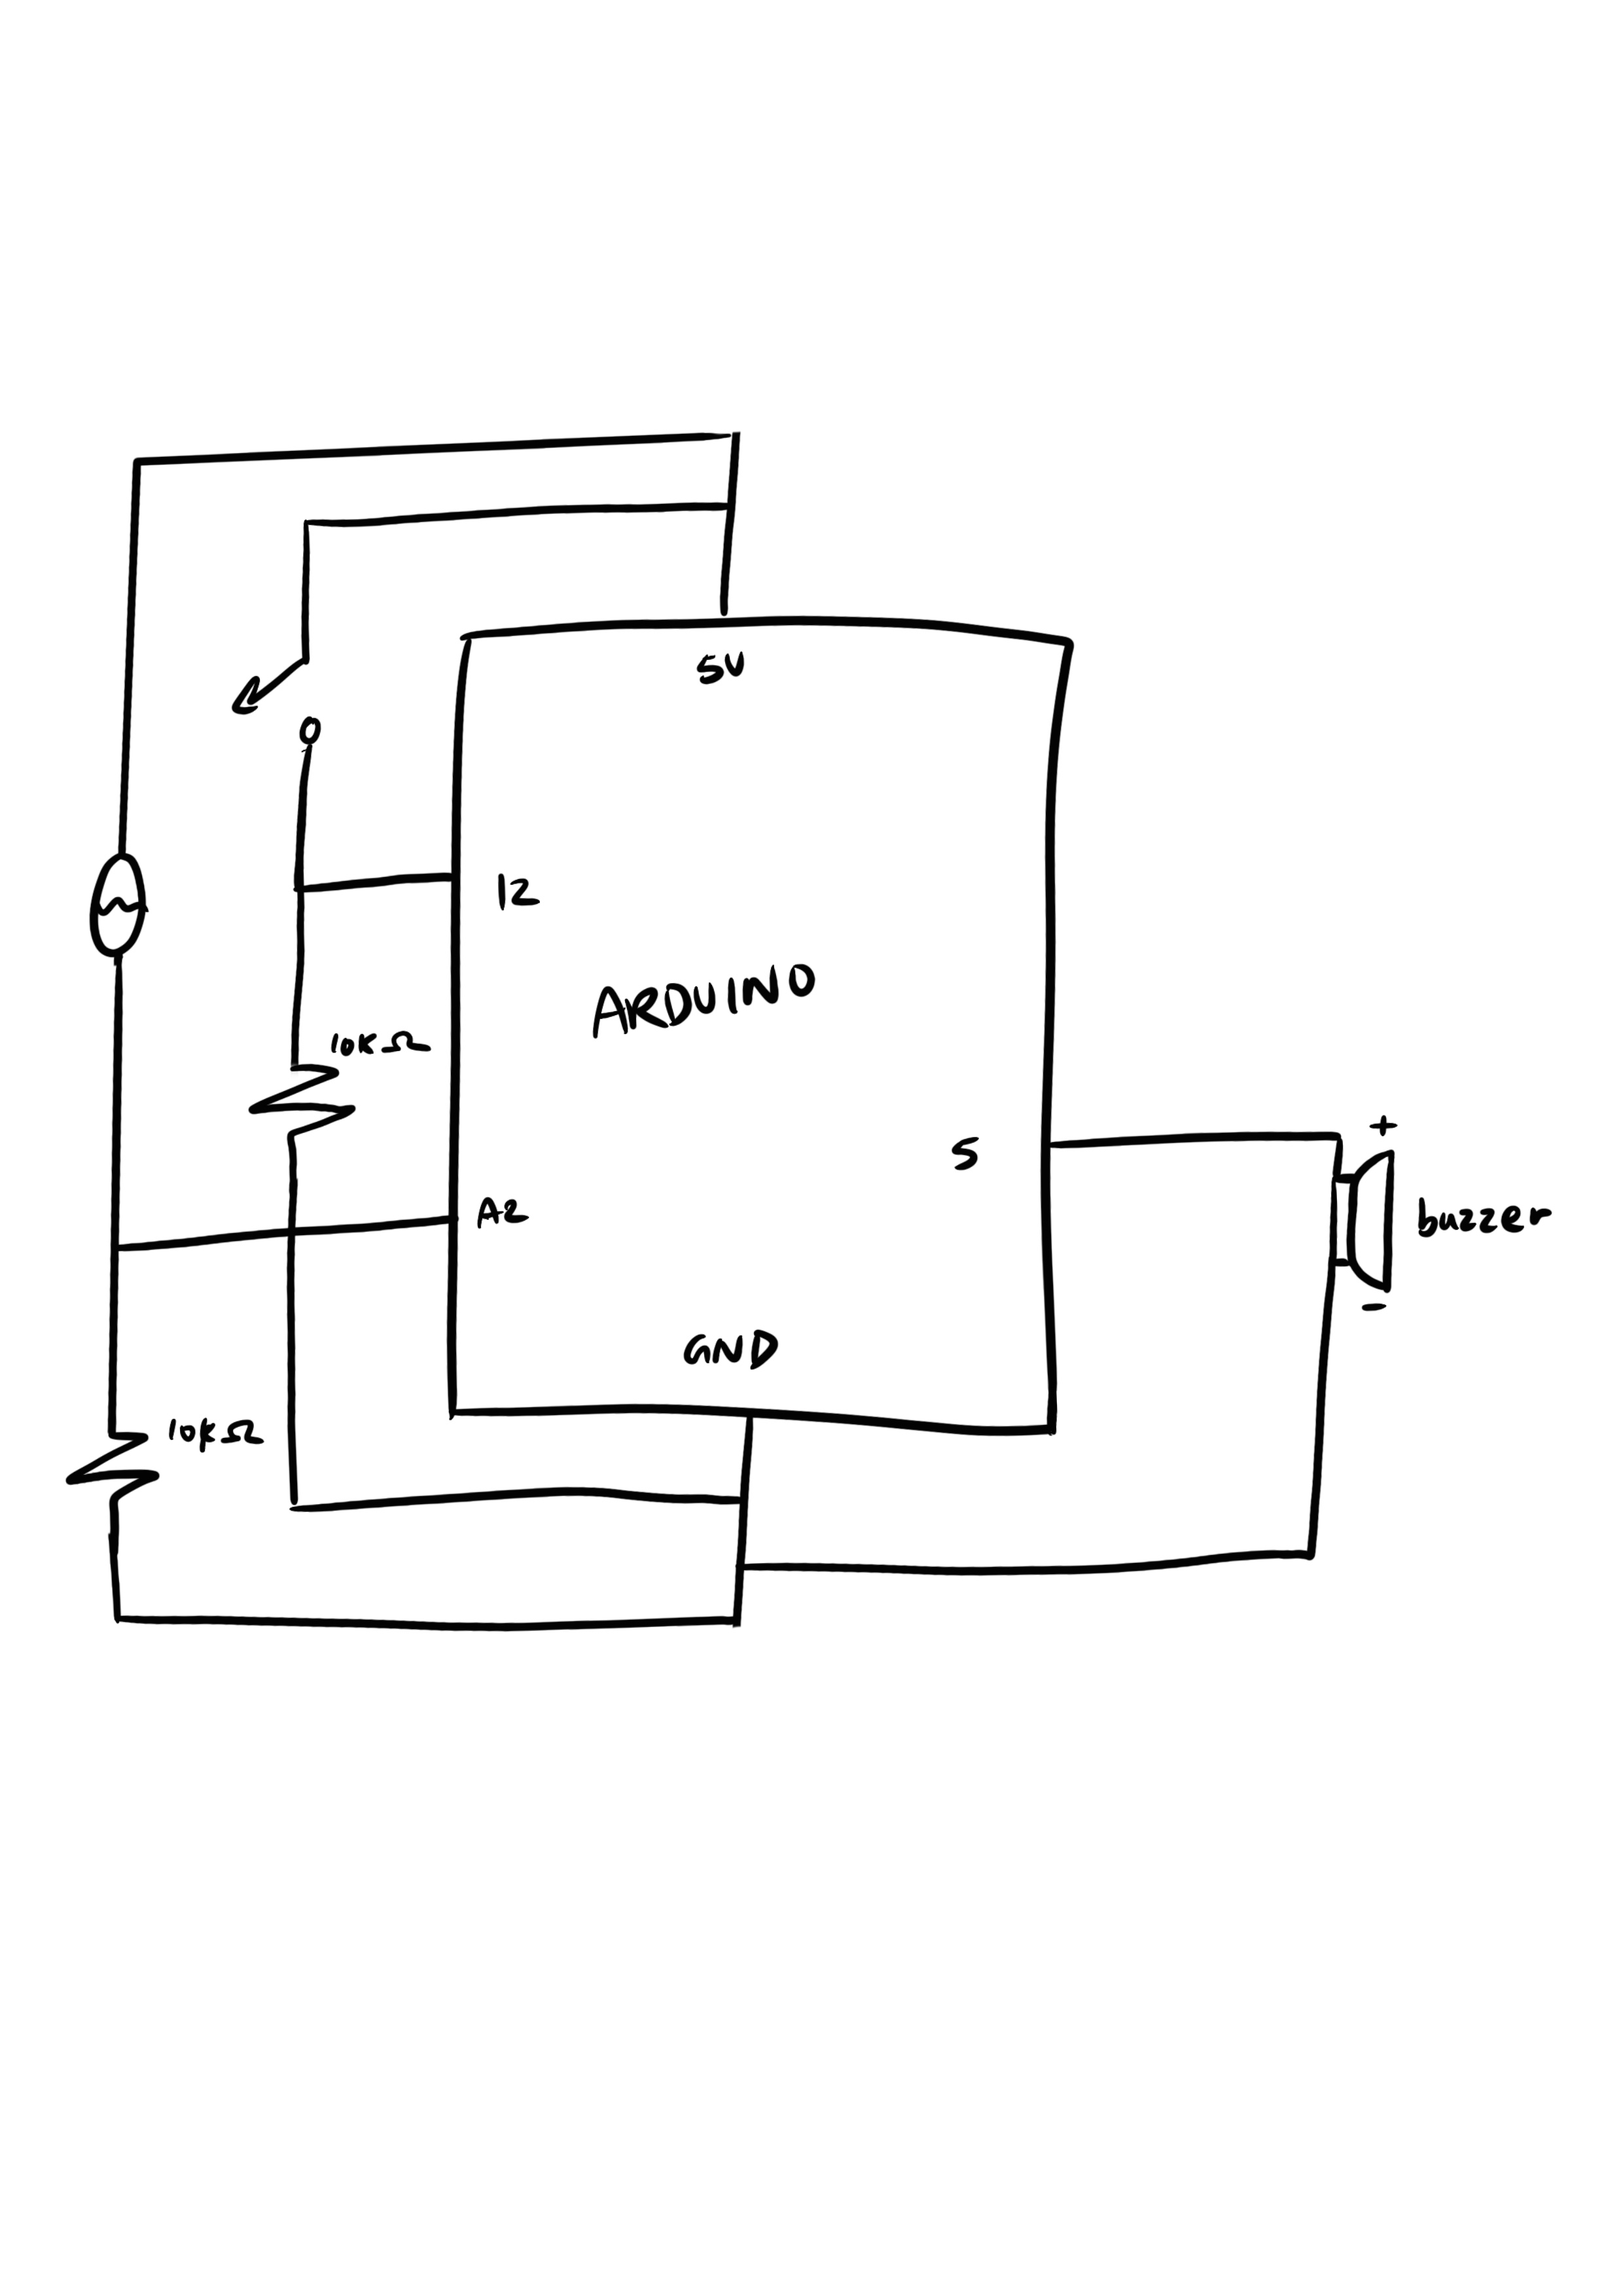 5V
12
ARDUINO
10KΩ
+
5
A2
buzzer
-
GND
10KΩ